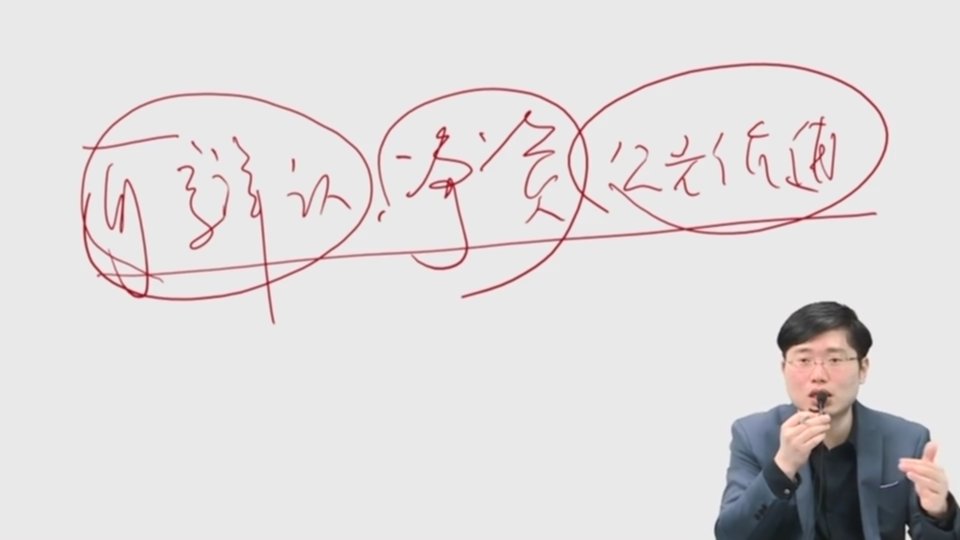 可辨认净资公允价值